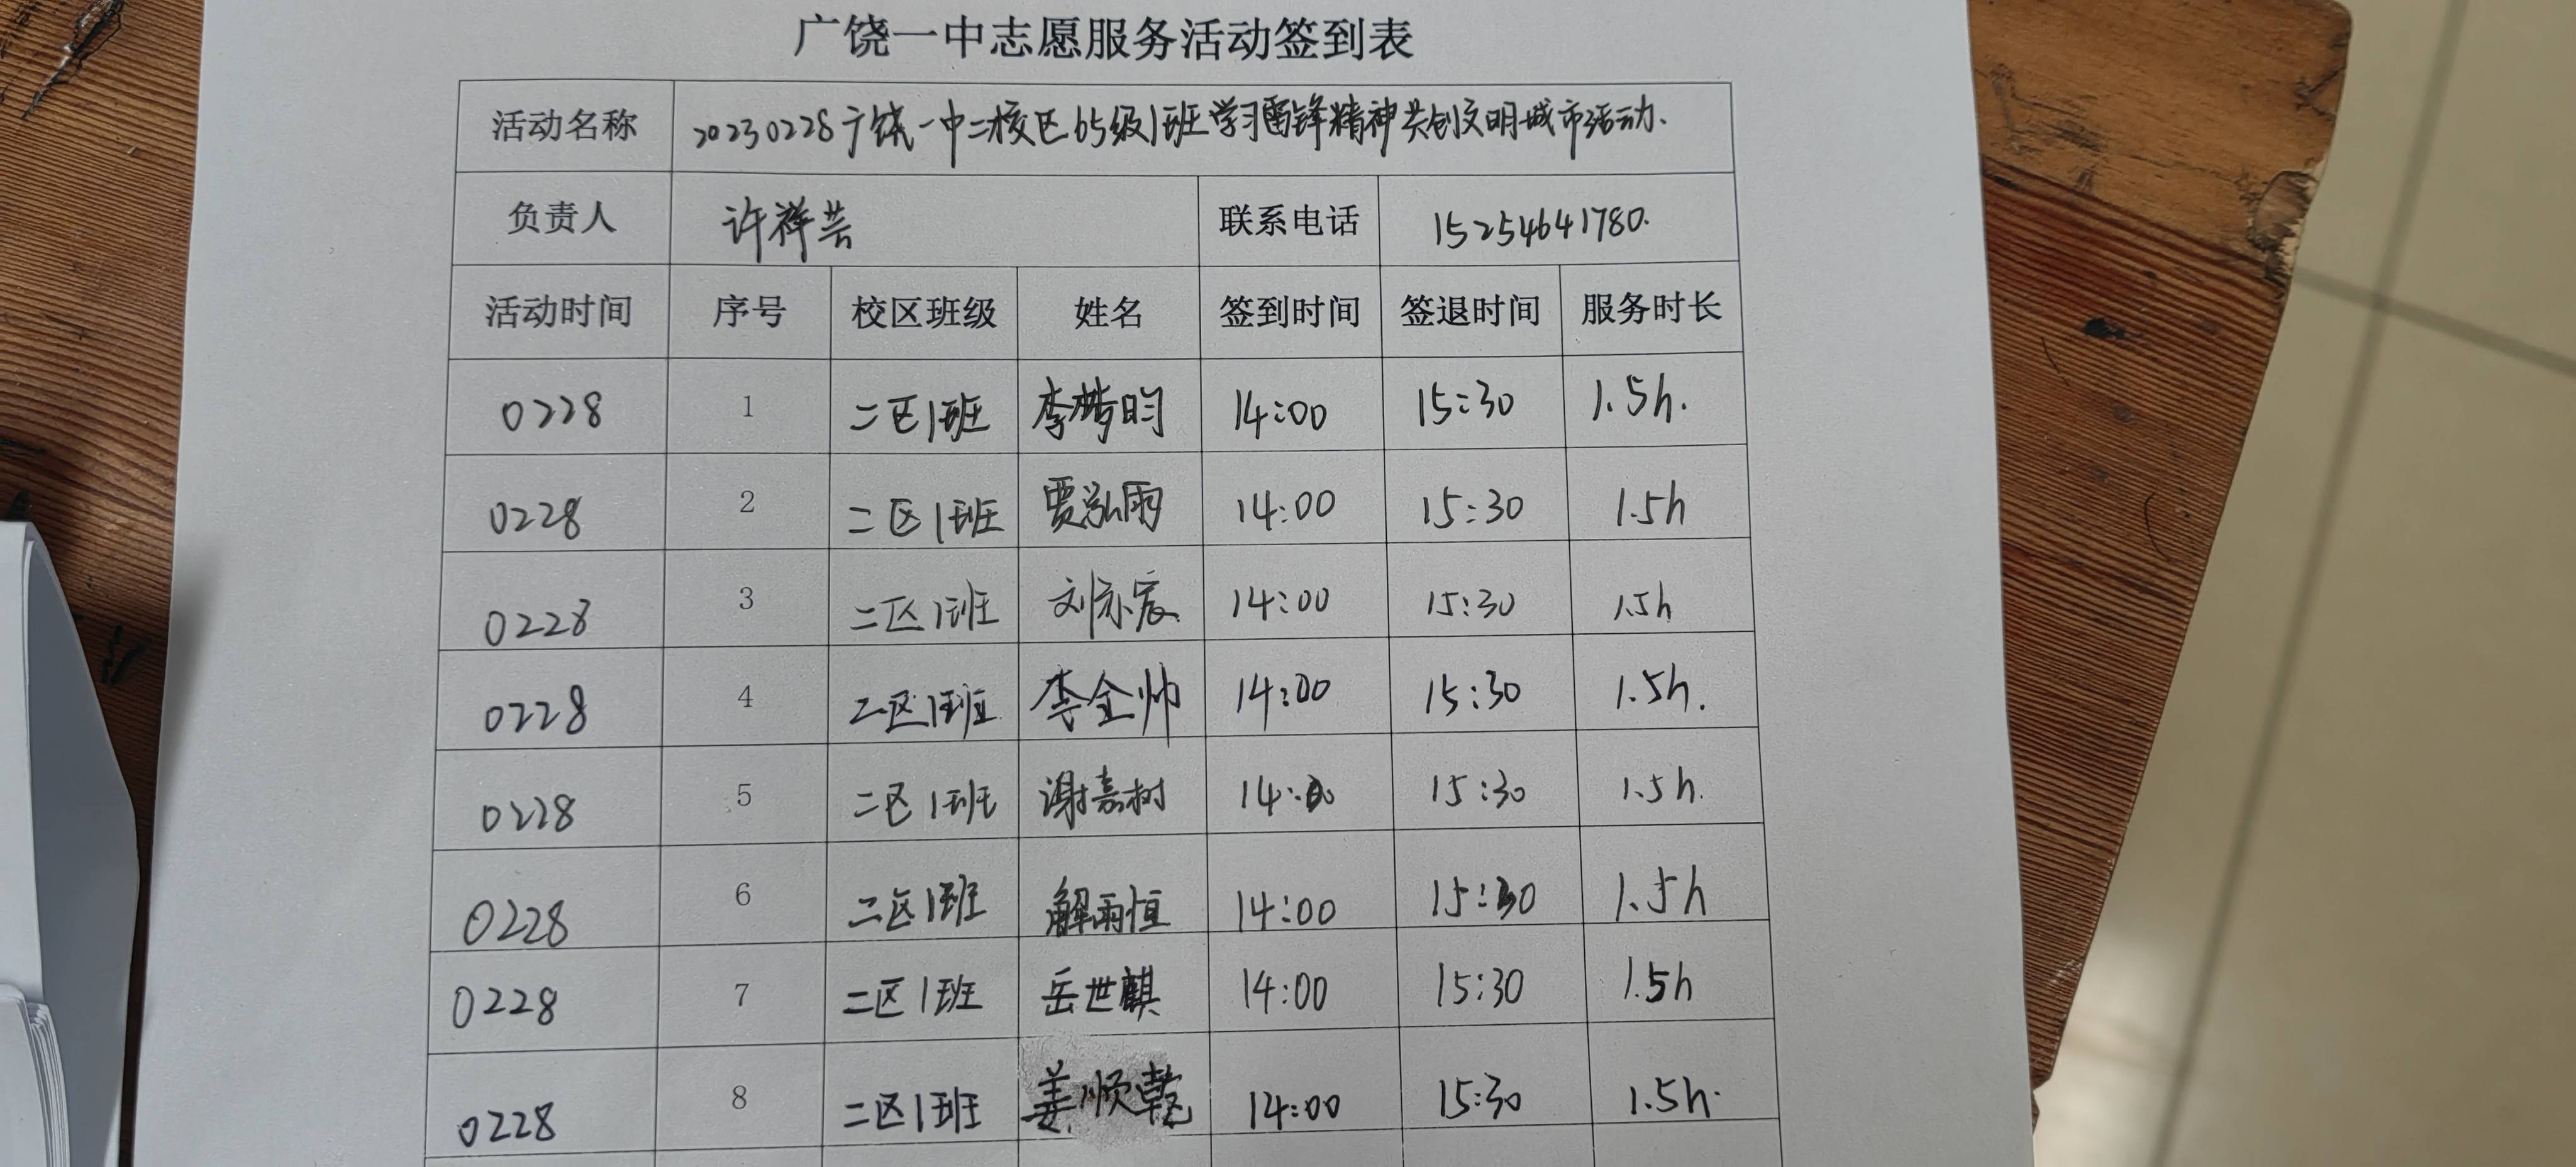 广饶一中志愿服务活动签到表
活动名称 20230228广饶一中二校区65级1班学习雷锋精神共创文明城市活动.
负责人 许祥芸 联系电话 15254641780.
活动时间 序号 校区班级 姓名 签到时间 签退时间 服务时长
0228 1 二区1班 李梦昀 14:00 15:30 1.5h.
0228 2 二区1班 贾泓雨 14:00 15:30 1.5h
0228 3 二区1班 刘亦宸 14:00 15:30 1.5h
0228 4 二区1班 李金帅 14:00 15:30 1.5h.
0228 5 二区1班 谢嘉树 14:00 15:30 1.5h.
0228 6 二区1班 解雨恒 14:00 15:30 1.5h
0228 7 二区1班 岳世麒 14:00 15:30 1.5h
0228 8 二区1班 姜顺乾 14:00 15:30 1.5h.